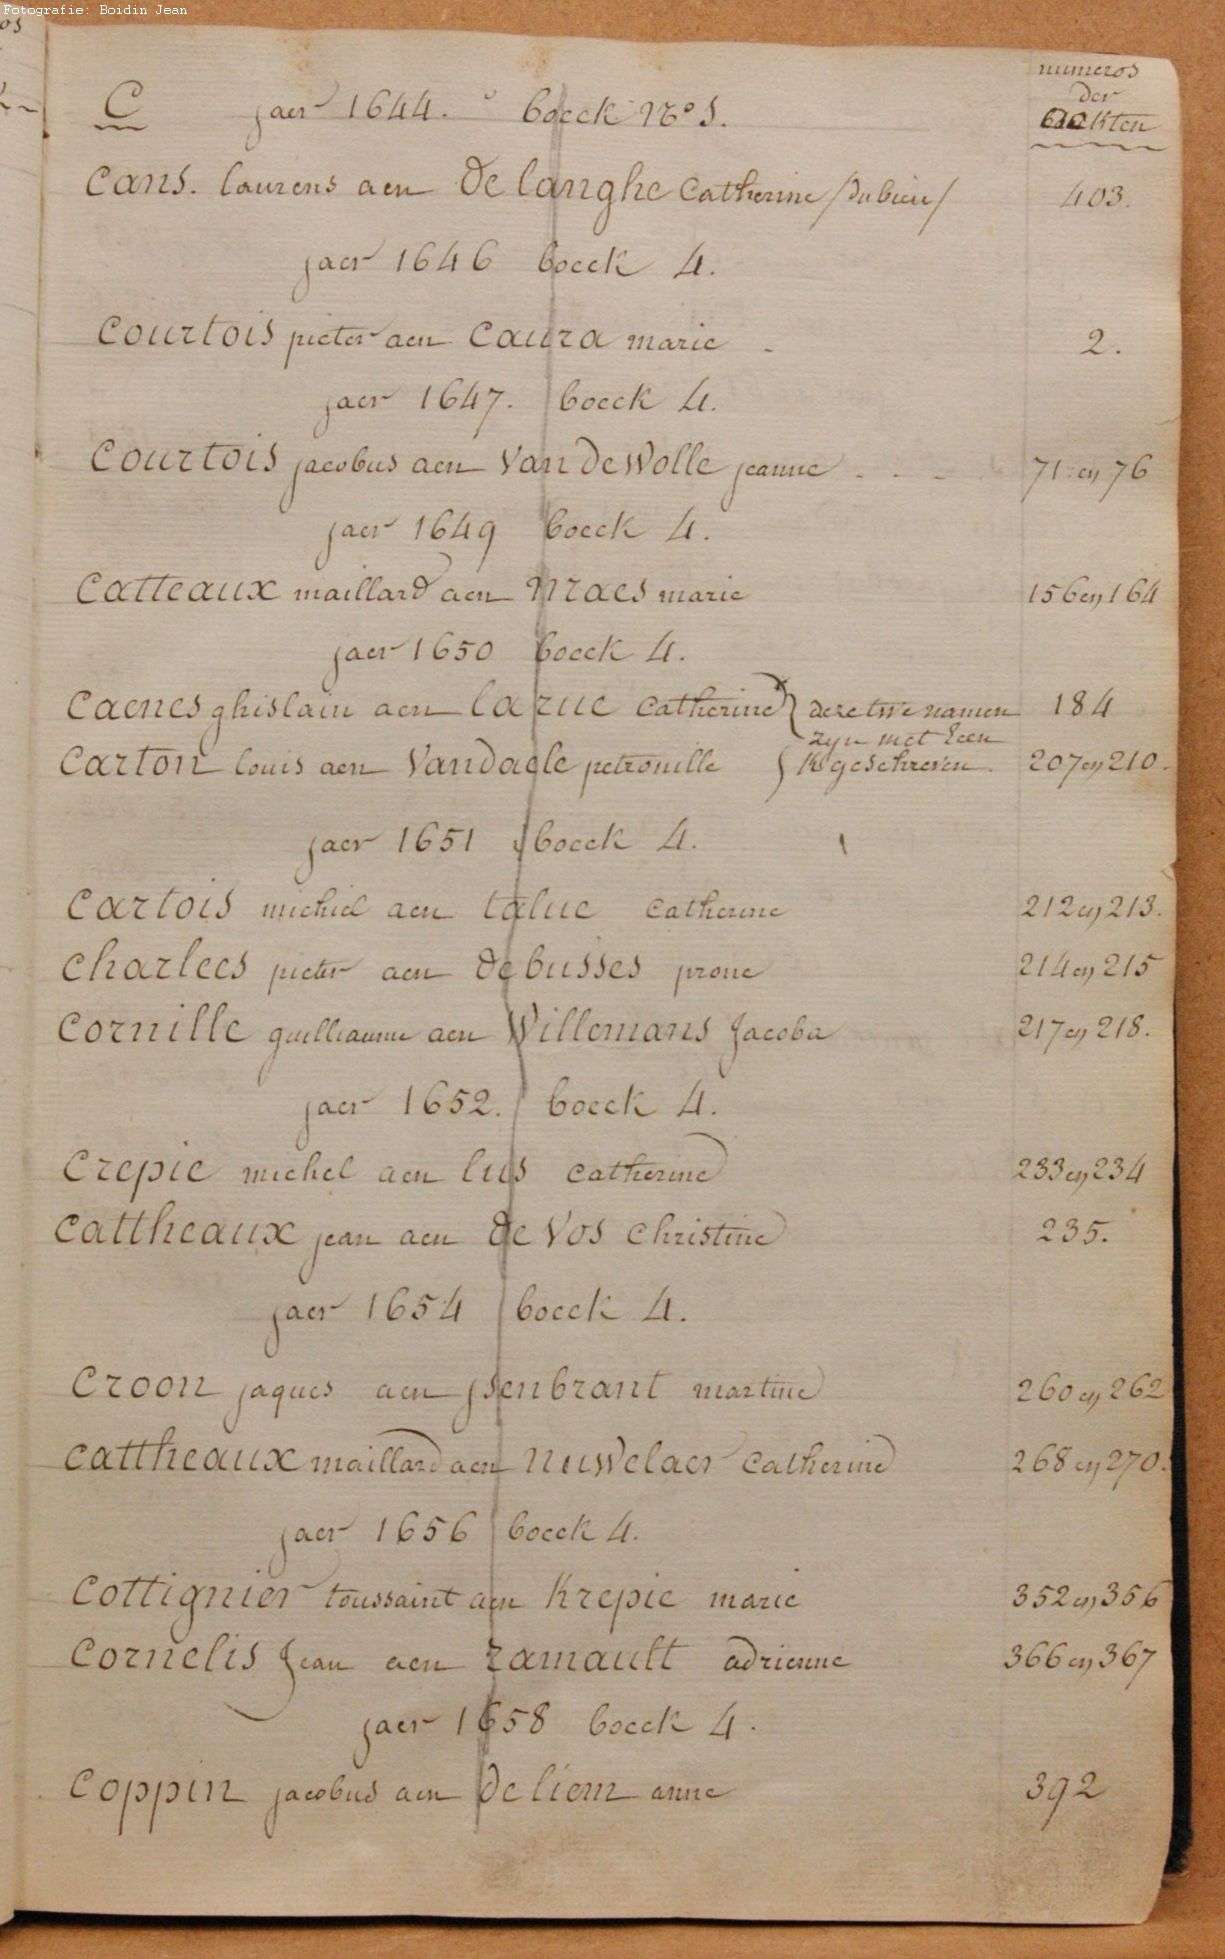 Fotografie: Boidin Jean
numeros
der
aakten
C jaer 1644. boeck No 5.
Cans. laurens aen De langhe Catherine /Dubieu/ 403.
jaer 1646 boeck 4.
Courtois pieter aen Caura marie - 2.
jaer 1647. boeck 4.
Courtois jacobus aen Van De Wolle jeanne - - - 71 en 76
jaer 1649 boeck 4.
Catteaux maillard aen Maes marie 156 en 164
jaer 1650 boeck 4.
Caenes ghislain aen la rue Catherine deze twe namen 184
zyn met Een
Carton louis aen Vandaele petronille K geschreven 207 en 210.
jaer 1651 boeck 4.
Cartois michiel aen talue Catherine 212 en 213.
Charlees pieter aen De busses prone 214 en 215
Cornille guilliaume aen Willemans Jacoba 217 en 218.
jaer 1652. boeck 4.
Crepie michel aen lus Catherine 233 en 234
Cattheaux jean aen De Vos Christine 235.
jaer 1654 boeck 4.
Croon jaques aen jsenbrant martine 260 en 262
Cattheaux maillard aen nuwelaer Catherine 268 en 270.
jaer 1656 boeck 4.
Cottignier toussaint aen Krepie marie 352 en 356
Cornelis Jean aen ramault adrienne 366 en 367
jaer 1658 boeck 4.
Coppin jacobus aen De liem anne 392